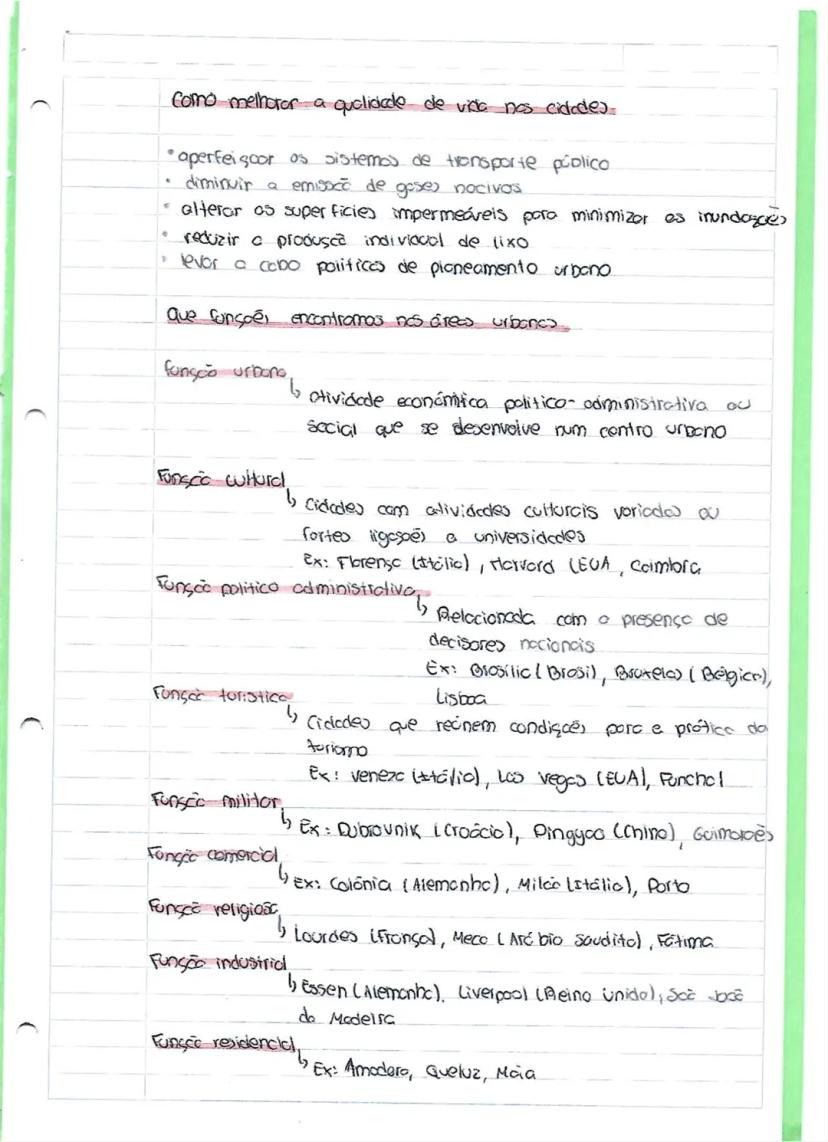 Como melhorar a qualidade de vida nas cidades
• aperfeiçoar os sistemas de transporte público
• diminuir a emissão de gases nocivos
• alterar as superfícies impermeáveis para minimizar as inundações
• reduzir a produção individual de lixo
• levar a cabo políticas de planeamento urbano
Que funções encontramos nas áreas urbanas
função urbana
↳ atividade económica politico-administrativa ou
social que se desenvolve num centro urbano
Função cultural
↳ Cidades com atividades culturais variadas ou
fortes ligações a universidades
Ex: Florença (Itália), Harvard (EUA, Coimbra
Função politico administrativa
↳ Relacionada com a presença de
decisores nacionais
Ex: Brasília (Brasil), Bruxelas (Bélgica),
Lisboa
Função turistica
↳ Cidades que reúnem condições para a prática do
turismo
Ex: Veneza (Itália), Las Vegas (EUA), Funchal
Função militar
↳ Ex: Dubrovnik (Croácia), Pingyao (China), Guimarães
Função comercial
↳ Ex: Colónia (Alemanha), Milão (Itália), Porto
Função religiosa
↳ Lourdes (França), Meca (Arábia Saudita), Fátima
Função industrial
↳ Essen (Alemanha), Liverpool (Reino Unido), São João
da Madeira
Função residencial
↳ Ex: Amadora, Queluz, Maia